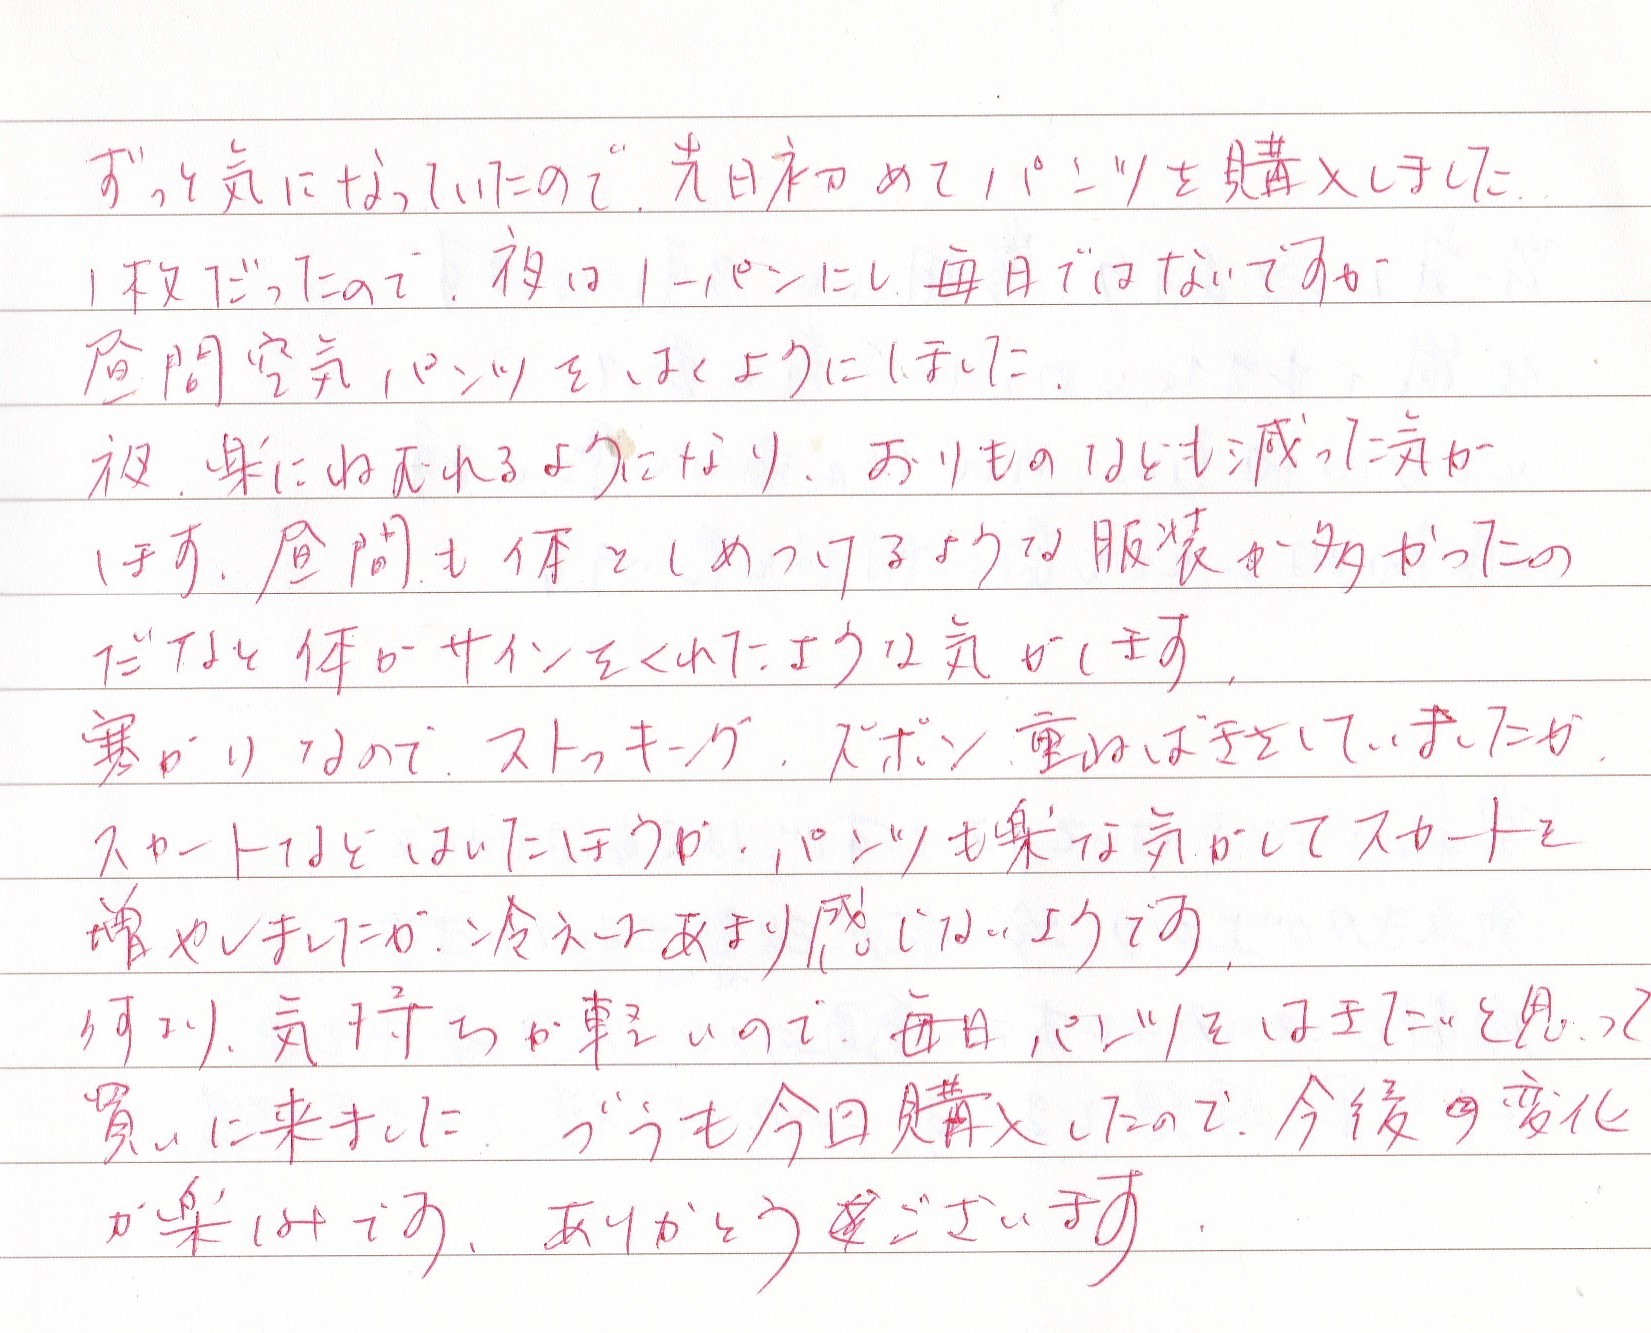 ずっと気になっていたので、先日初めてパンツを購入しました。
1枚だったので、夜はノーパンにし、毎日ではないですが
昼間空気パンツをはくようにしました。
夜、楽にねむれるようになり、おりものなども減った気が
します。昼間も体をしめつけるような服装が多かったの
だなと体がサインをくれたような気がします。
寒がりなので、ストッキング、ズボン重ねばきをしていましたが、
スカートなどはいたほうが、パンツも楽な気がしてスカートを
増やしましたが、冷えはあまり感じないようです。
何より、気持ちが軽いので、毎日パンツをはきたいと思って
買いに来ました。 今日購入したので、今後の変化
が楽しみです。ありがとうございます。